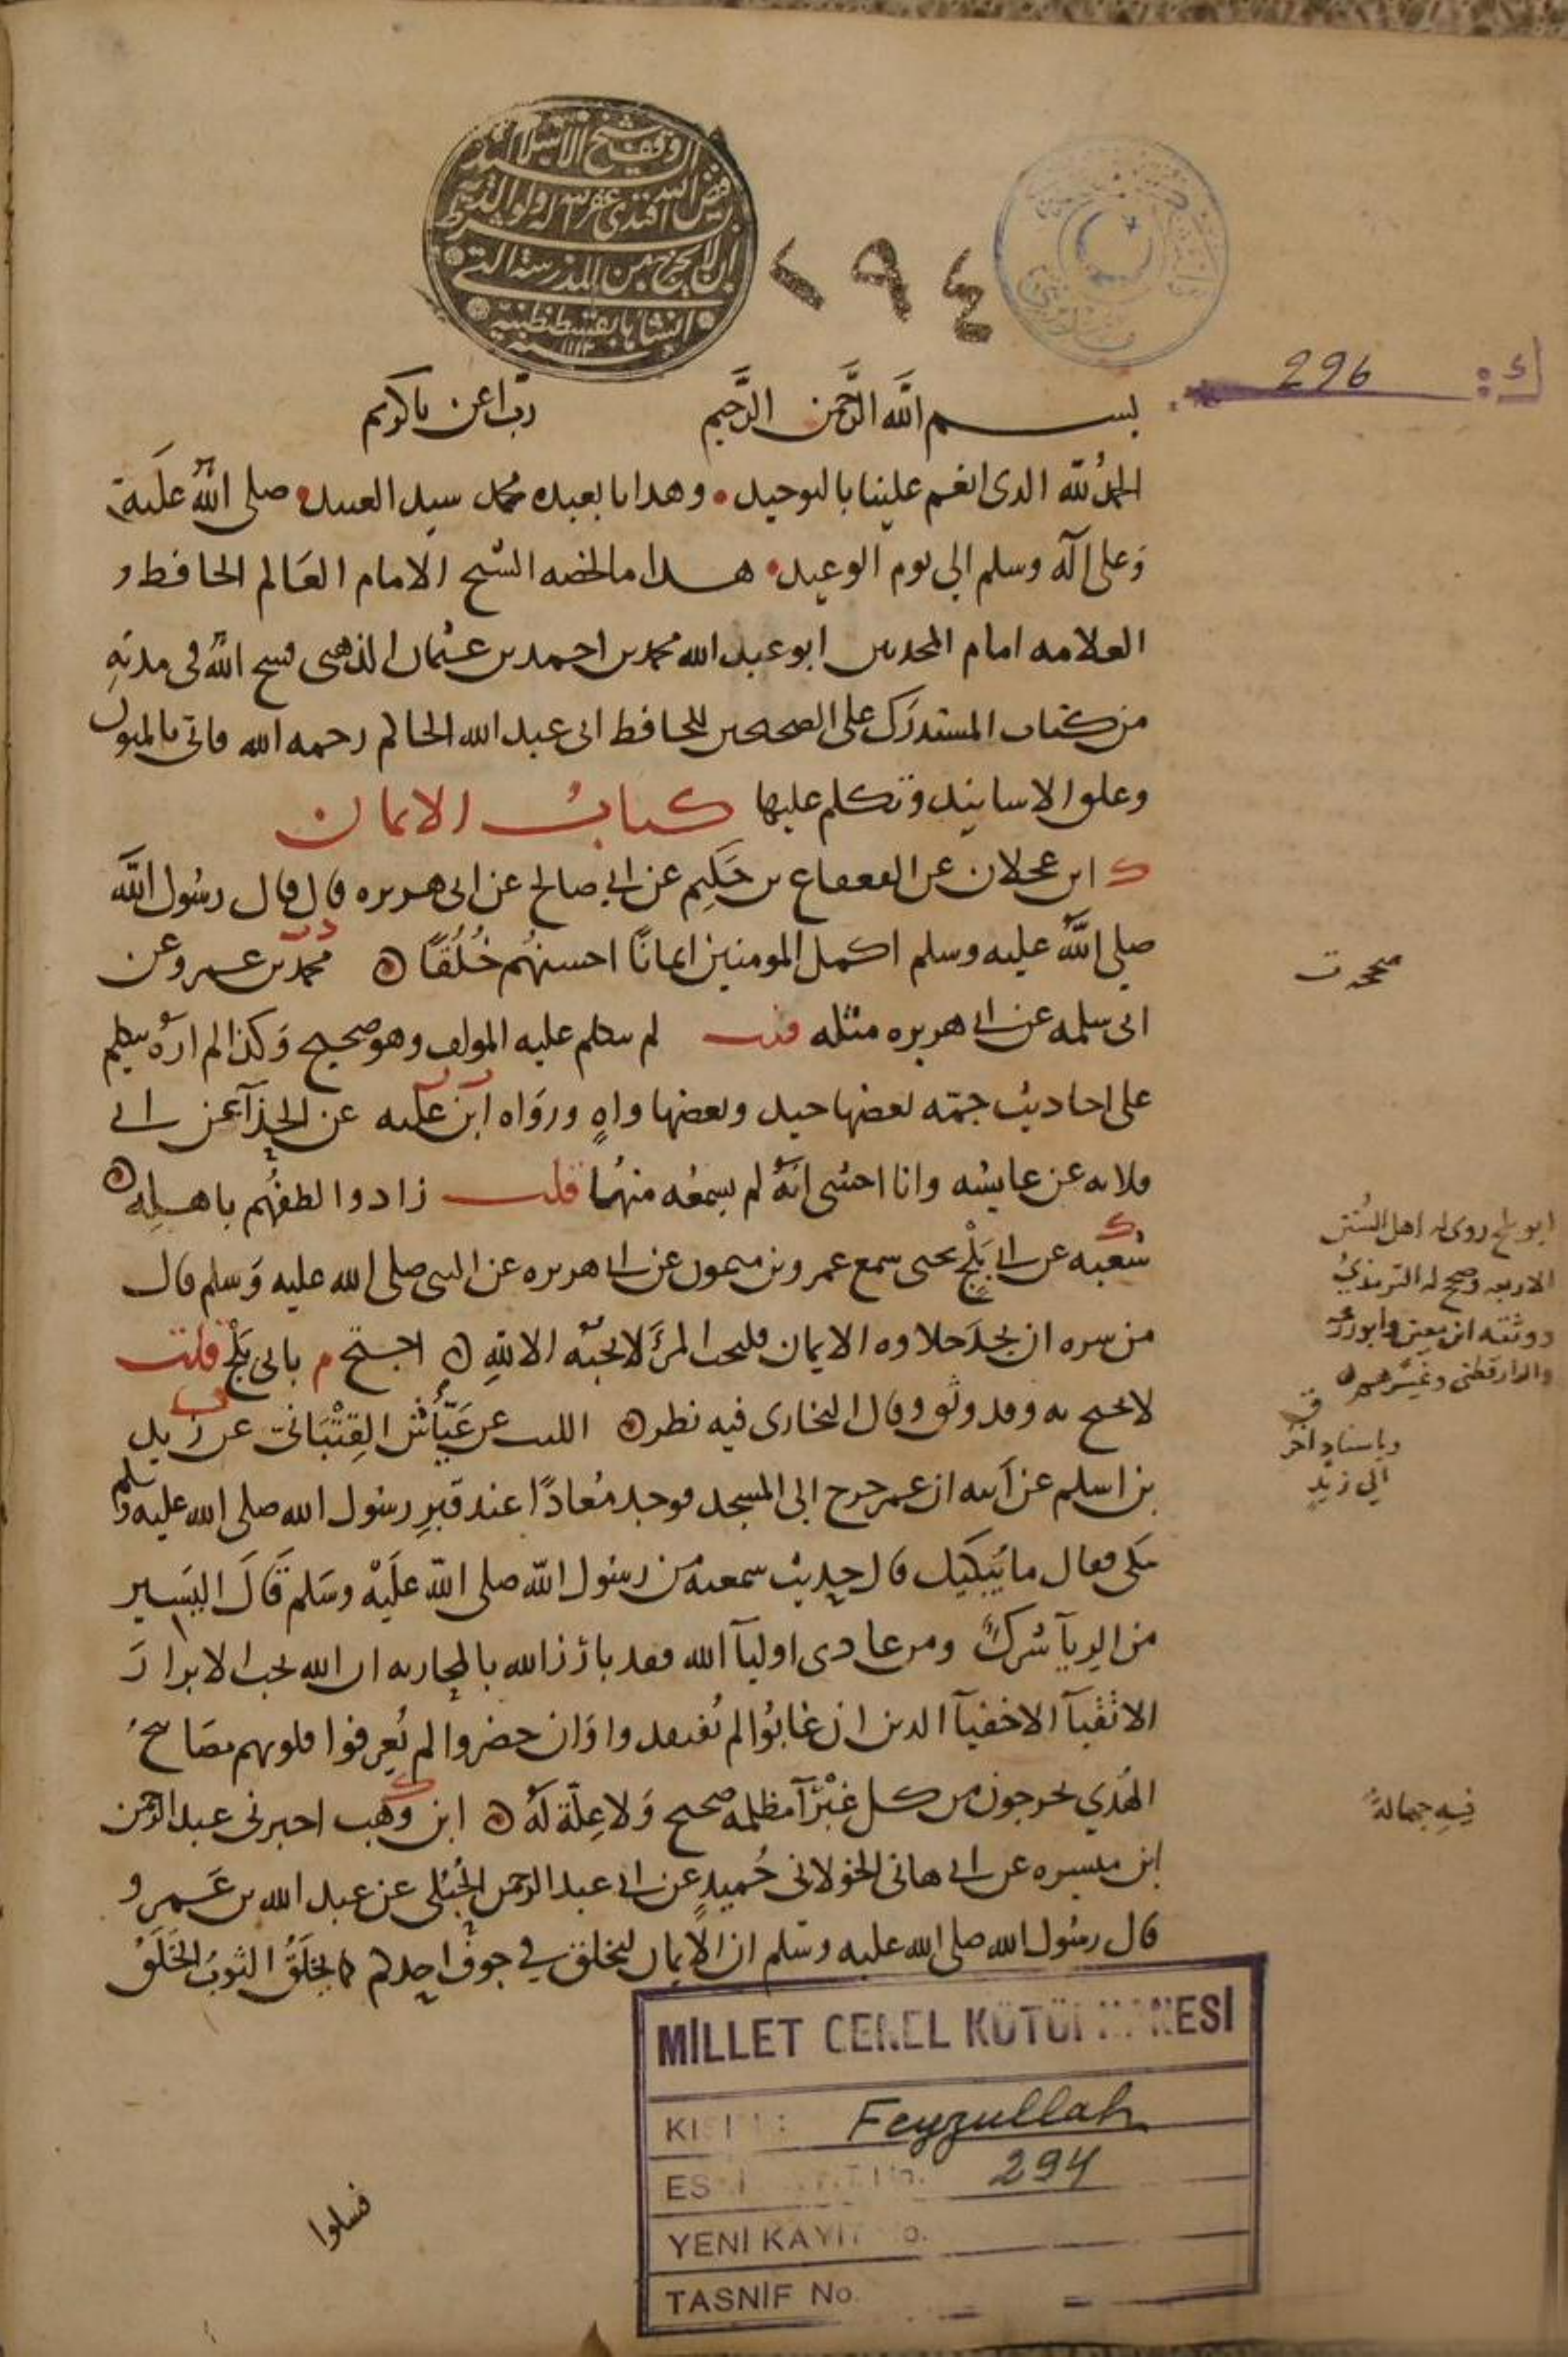 وقف شيخ الاسلام السيد
فيض الله افندي غفر الله له ولوالديه بشرط
ان لا يخرج من المدرسة التي
انشأها بقسطنطينية
سنة ١١١٢
٢٩٤
296
بسم الله الرحمن الرحيم رب اعن يا كريم
الحمد لله الذي انعم علينا بالتوحيد وهدانا بعبده محمد سيد العبيد صلى الله عليه
وعلى آله وسلم الى يوم الوعيد هذا ما لخصه الشيخ الامام العالم الحافظ و
العلامه امام المحدثين ابو عبد الله محمد بن احمد بن عثمان الذهبي فسح الله في مدته
من كتاب المستدرك على الصحيحين للحافظ ابي عبد الله الحاكم رحمه الله فاتى بالمتون
وعلو الاسانيد وتكلم عليها كتاب الايمان
ابن عجلان عن القعقاع بن حكيم عن ابي صالح عن ابي هريره قال قال رسول الله
صلى الله عليه وسلم اكمل المومنين ايمانًا احسنهم خُلُقًا محمد بن عمرو عن
ابي سلمه عن ابي هريره مثله قلت لم يتكلم عليه المولف وهو صحيح وكذا لم اره يتكلم
على احاديث جمّه بعضها جيد وبعضها واهٍ ورواه ابن عليه عن الحذآ عن ابي
قلابه عن عايشه وانا اخشى انه لم يسمعه منها قلت زادوا الطفهم باهله
شعبه عن ابي بَلْج يحيى سمع عمرو بن ميمون عن ابي هريره عن النبي صلى الله عليه وسلم قال
من سره ان يجد حلاوه الايمان فليحب المرَ لا يحبه الا لله احتج م بابي بَلْج قلت
لا يحتج به وقد وثق وقال البخاري فيه نظر الليث عن عَيَّاش القِتْبَاني عن زيد
بن اسلم عن ابيه ان عمر خرج الى المسجد فوجد مُعاذًا عند قبرِ رسول الله صلى الله عليه وسلم
يبكي فقال ما يُبكيك قال حديث سمعته من رسول الله صلى الله عليه وسلم قال اليسير
من الريآ شرك ومن عادى اوليآ الله فقد بارز الله بالمحاربه ان الله يحب الابرار
الاتقيآ الاخفيآ الذين ان غابُوا لم يُفتقدوا وان حضروا لم يُعرفوا قلوبهم مصابيح
الهُدي يخرجون من كل غَبْرَآ مظلمه صحيح ولا عِلّة له ابن وهب اخبرني عبد الرحمن
ابن ميسره عن ابي هاني الخولاني حُميدٍ عن ابي عبد الرحمن الحُبُلي عن عبد الله بن عمرو
قال رسول الله صلى الله عليه وسلم ان الايمان ليخلق في جوف احدكم كما يخلَقُ الثوبُ الخَلَقُ
ابو بلج روى له اهل السُنن
الاربعه وصحح له الترمذيُ
ووثقه ابن معين وابو زرعه
والدارقطني وغيرهم
وباسنادٍ آخر
الى زيدٍ
فيهِ جهالةٌ
فسلوا
MİLLET GENEL KÜTÜPHANESİ
Feyzullah
294
YENİ KAYIT No.
TASNİF No.